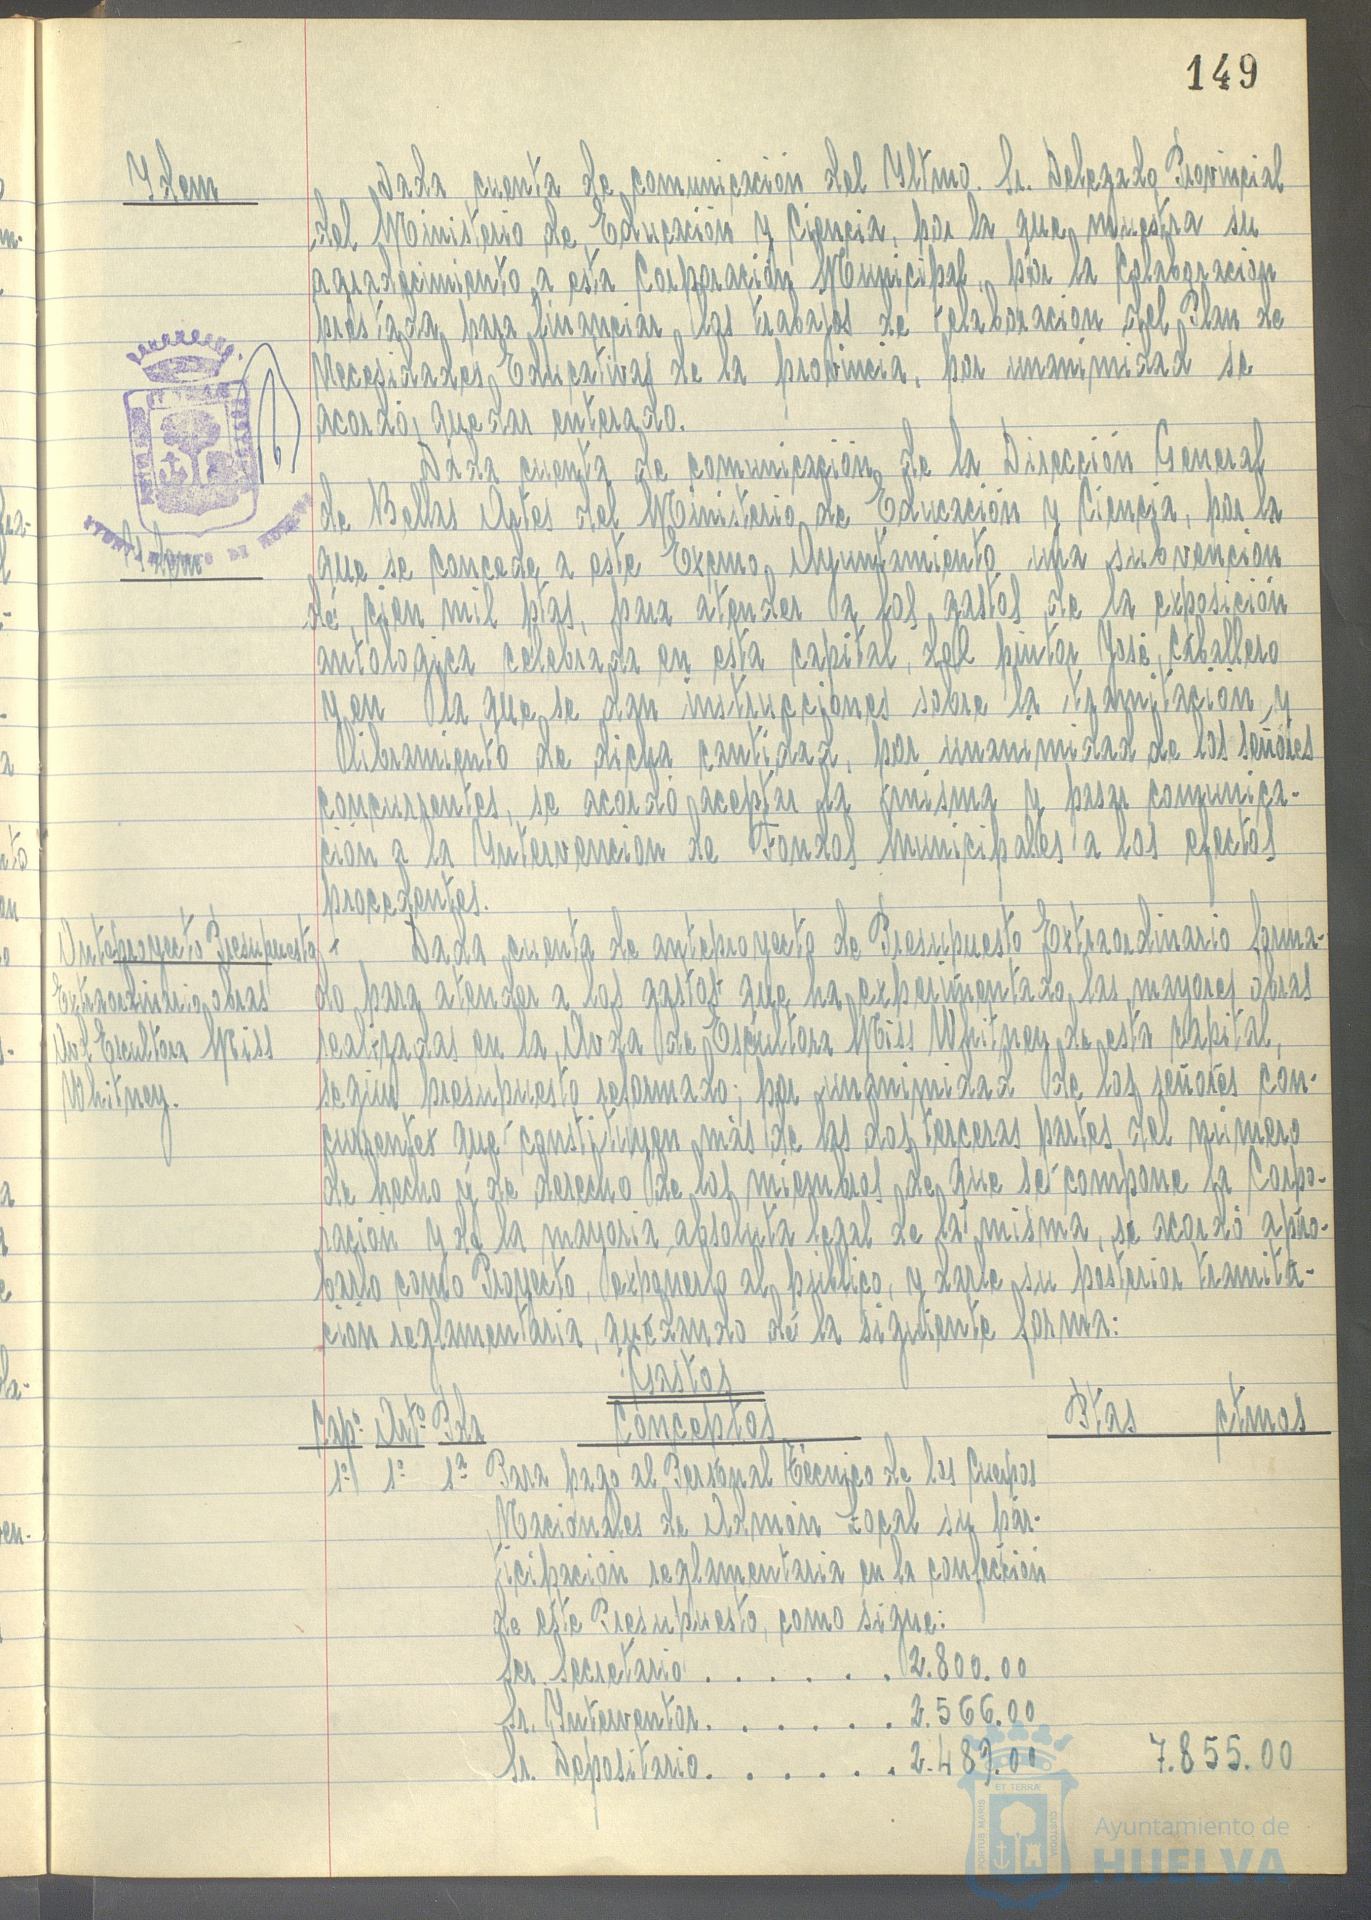 149
Idem
Dada cuenta de comunicación del Yltmo. Sr. Delegado Provincial
del Ministerio de Educación y Ciencia, por la que muestra su
agradecimiento a esta Corporación Municipal, por la colaboración
prestada para financiar los trabajos de elaboración del Plan de
Necesidades Educativas de la provincia, por unanimidad se
acordó, quedar enterado.
Idem
Dada cuenta de comunicación de la Dirección General
de Bellas Artes del Ministerio de Educación y Ciencia, por la
que se concede a este Excmo. Ayuntamiento una subvención
de, cien mil ptas, para atender a los gastos de la exposición
antologica celebrada en esta capital, del pintor José Caballero
y en la que se dan instrucciones sobre la tramitación y
libramiento de dicha cantidad, por unanimidad de los señores
concurrentes, se acordó aceptar la misma y pasar comunica-
ción a la Intervención de Fondos Municipales a los efectos
procedentes.
Anteproyecto Presupuesto
Extraordinario obras
Avd Escultora Miss
Whitney.
Dada cuenta de anteproyecto de Presupuesto Extraordinario forma-
do para atender a los gastos que ha experimentado las mayores obras
realizadas en la Avda de Escultora Miss Whitney de esta capital,
según presupuesto reformado; por unanimidad de los señores con-
currentes que constituyen más de las dos terceras partes del número
de hecho y de derecho de los miembros de que se compone la Corpo-
ración y de la mayoria absoluta legal de la misma, se acordó apro-
barlo como Proyecto, exponerlo al público, y darle su posterior tramita-
ción reglamentaria, quedando de la siguiente forma:
Gastos
Cap: Artº Pda Conceptos Ptas ctmos
1º 1º 1ª Para pago al Personal Técnico de los Cuerpos
Nacionales de Admón Local su par-
ticipación reglamentaria en la confección
de este Presupuesto, como sigue:
Sr. Secretario . . . . . . 2.800.00
Sr. Interventor. . . . . . 2.566.00
Sr. Depositario. . . . . . 2.489.00 7.855.00
AYUNTAMIENTO DE HUELVA
PORTUS MARIS
ET TERRÆ
CUSTODIA
Ayuntamiento de
HUELVA